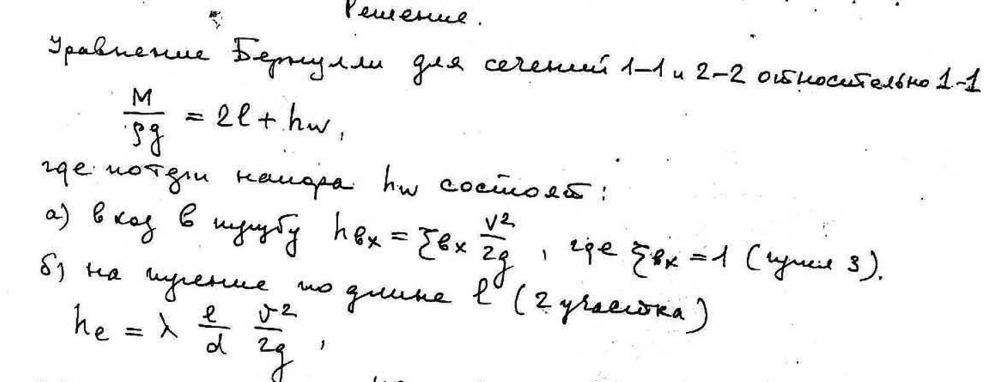 Решение.
Уравнение Бернулли для сечений 1-1 и 2-2 относительно 1-1
M/ρg = 2l + hw,
где потери напора hw состоят:
а) вход в трубу hвх = ξвх v²/2g, где ξвх = 1 (
б) на трение по длине l (2 участка)
he = λ l/d v²/2g,